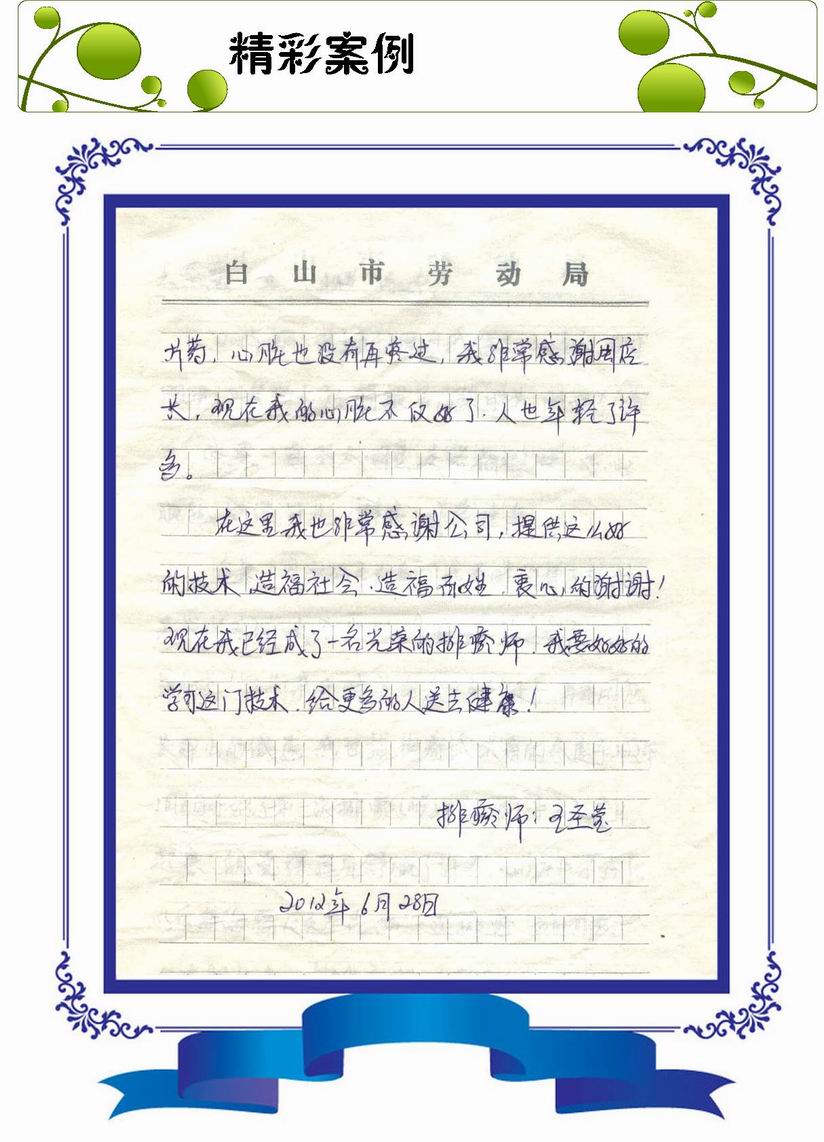 精彩案例
白山市劳动局
片药，心脏也没有再疼过，我非常感谢周店
长，现在我的心脏不仅好了．人也年轻了许
多。
在这里我也非常感谢公司，提供这么好
的技术，造福社会．造福百姓．衷心的谢谢！
现在我已经成了一名光荣的排瘀师．我要好好的
学习这门技术．给更多的人送去健康！
排瘀师：王圣莹
2012年6月28日